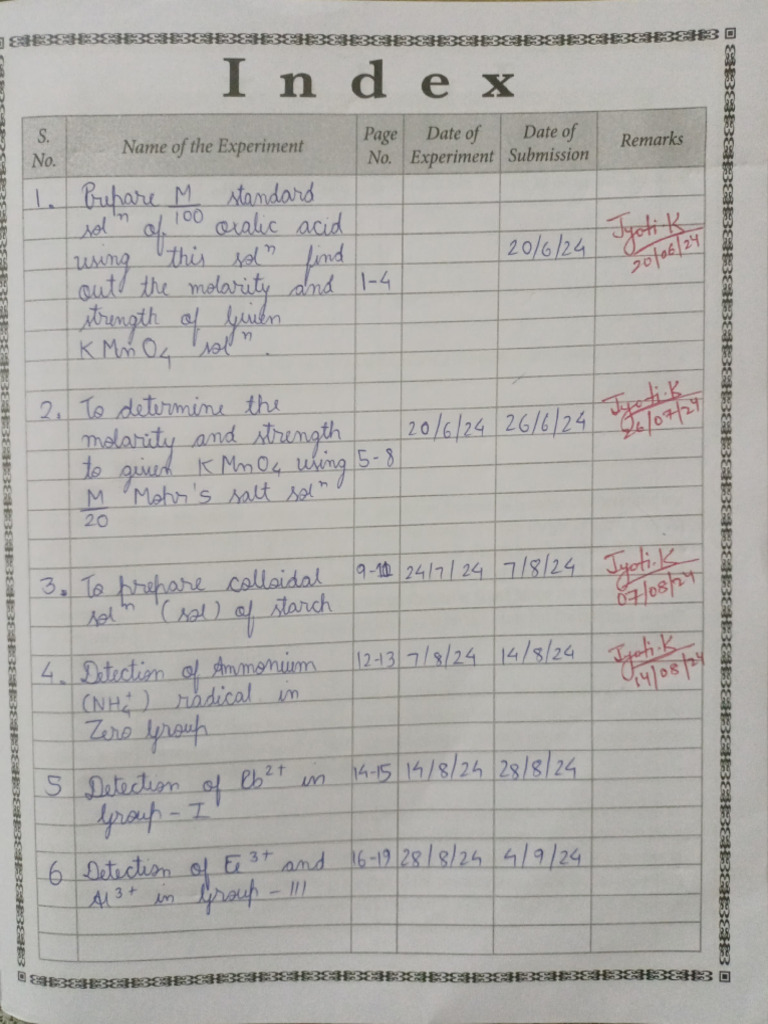 Index
S. No. Name of the Experiment Page No. Date of Experiment Date of Submission Remarks
1. Prepare M/100 standard
solⁿ of oxalic acid
using this solⁿ find 20/6/24 Jyoti.K 20/06/24
out the molarity and 1-4
strength of given
KMnO₄ solⁿ.
2. To determine the
molarity and strength 20/6/24 26/6/24 Jyoti.K 26/07/24
to given KMnO₄ using 5-8
M/20 Mohr's salt solⁿ
3. To prepare colloidal 9-11 24/7/24 7/8/24 Jyoti.K 07/08/24
solⁿ (sol) of starch
4. Detection of Ammonium 12-13 7/8/24 14/8/24 Jyoti.K 14/08/24
(NH₄⁺) radical in
Zero group
5 Detection of Pb²⁺ in 14-15 14/8/24 28/8/24
group - I
6 Detection of Fe³⁺ and 16-19 28/8/24 4/9/24
Al³⁺ in group - III